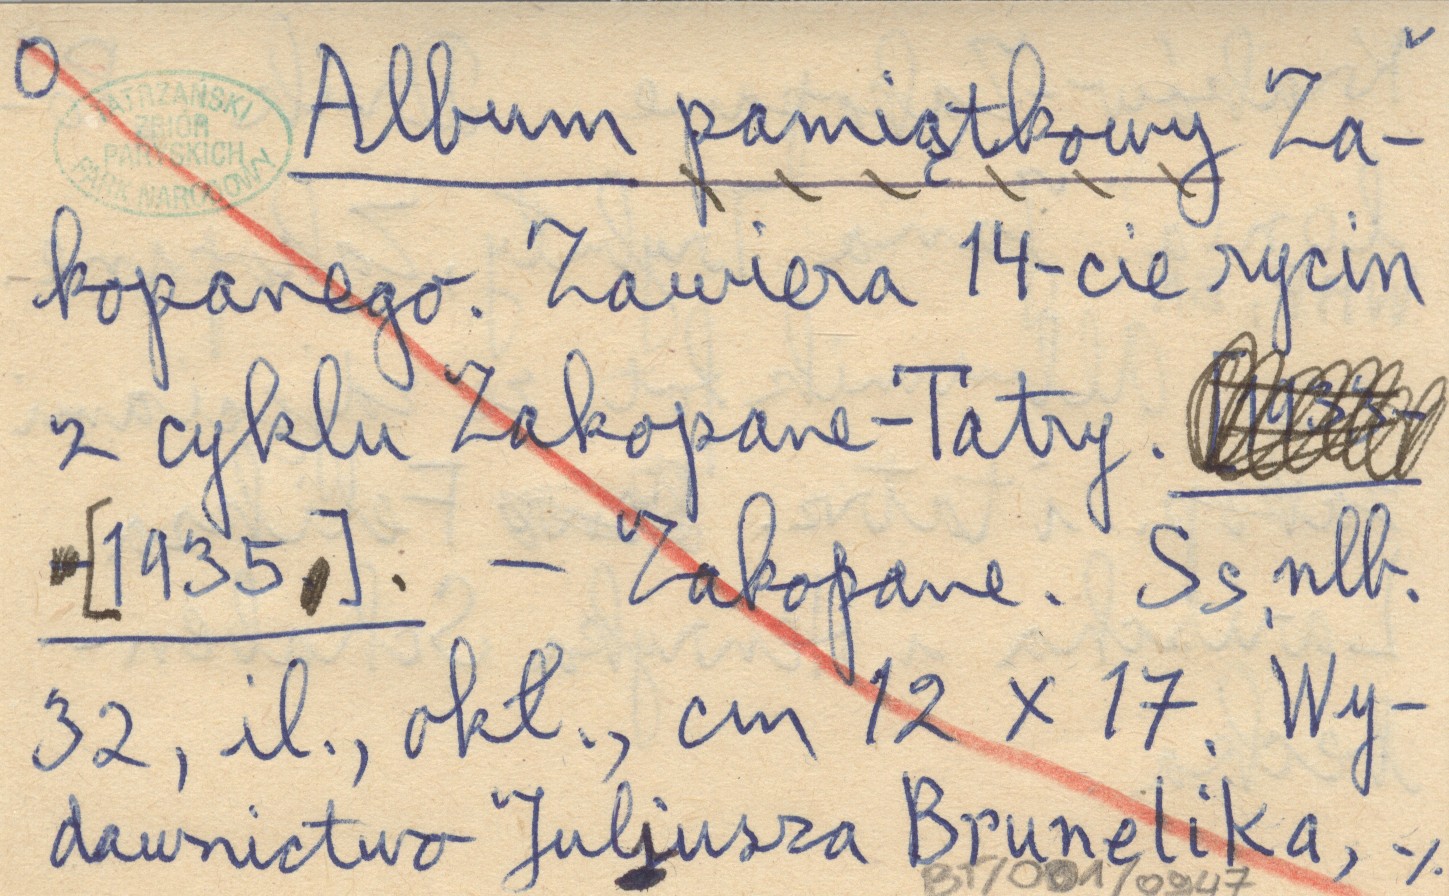 O
TATRZAŃSKI
ZBIÓR
PARYSKICH
PARK NARODOWY
Album pamiątkowy Za-
kopanego. Zawiera 14-cie rycin
z cyklu Zakopane-Tatry.
[1935]. — Zakopane. Ss, nlb.
32, il., okł., cm 12 x 17. Wy-
dawnictwo Juljusza Brunelika, ·/.
BT/001/0947